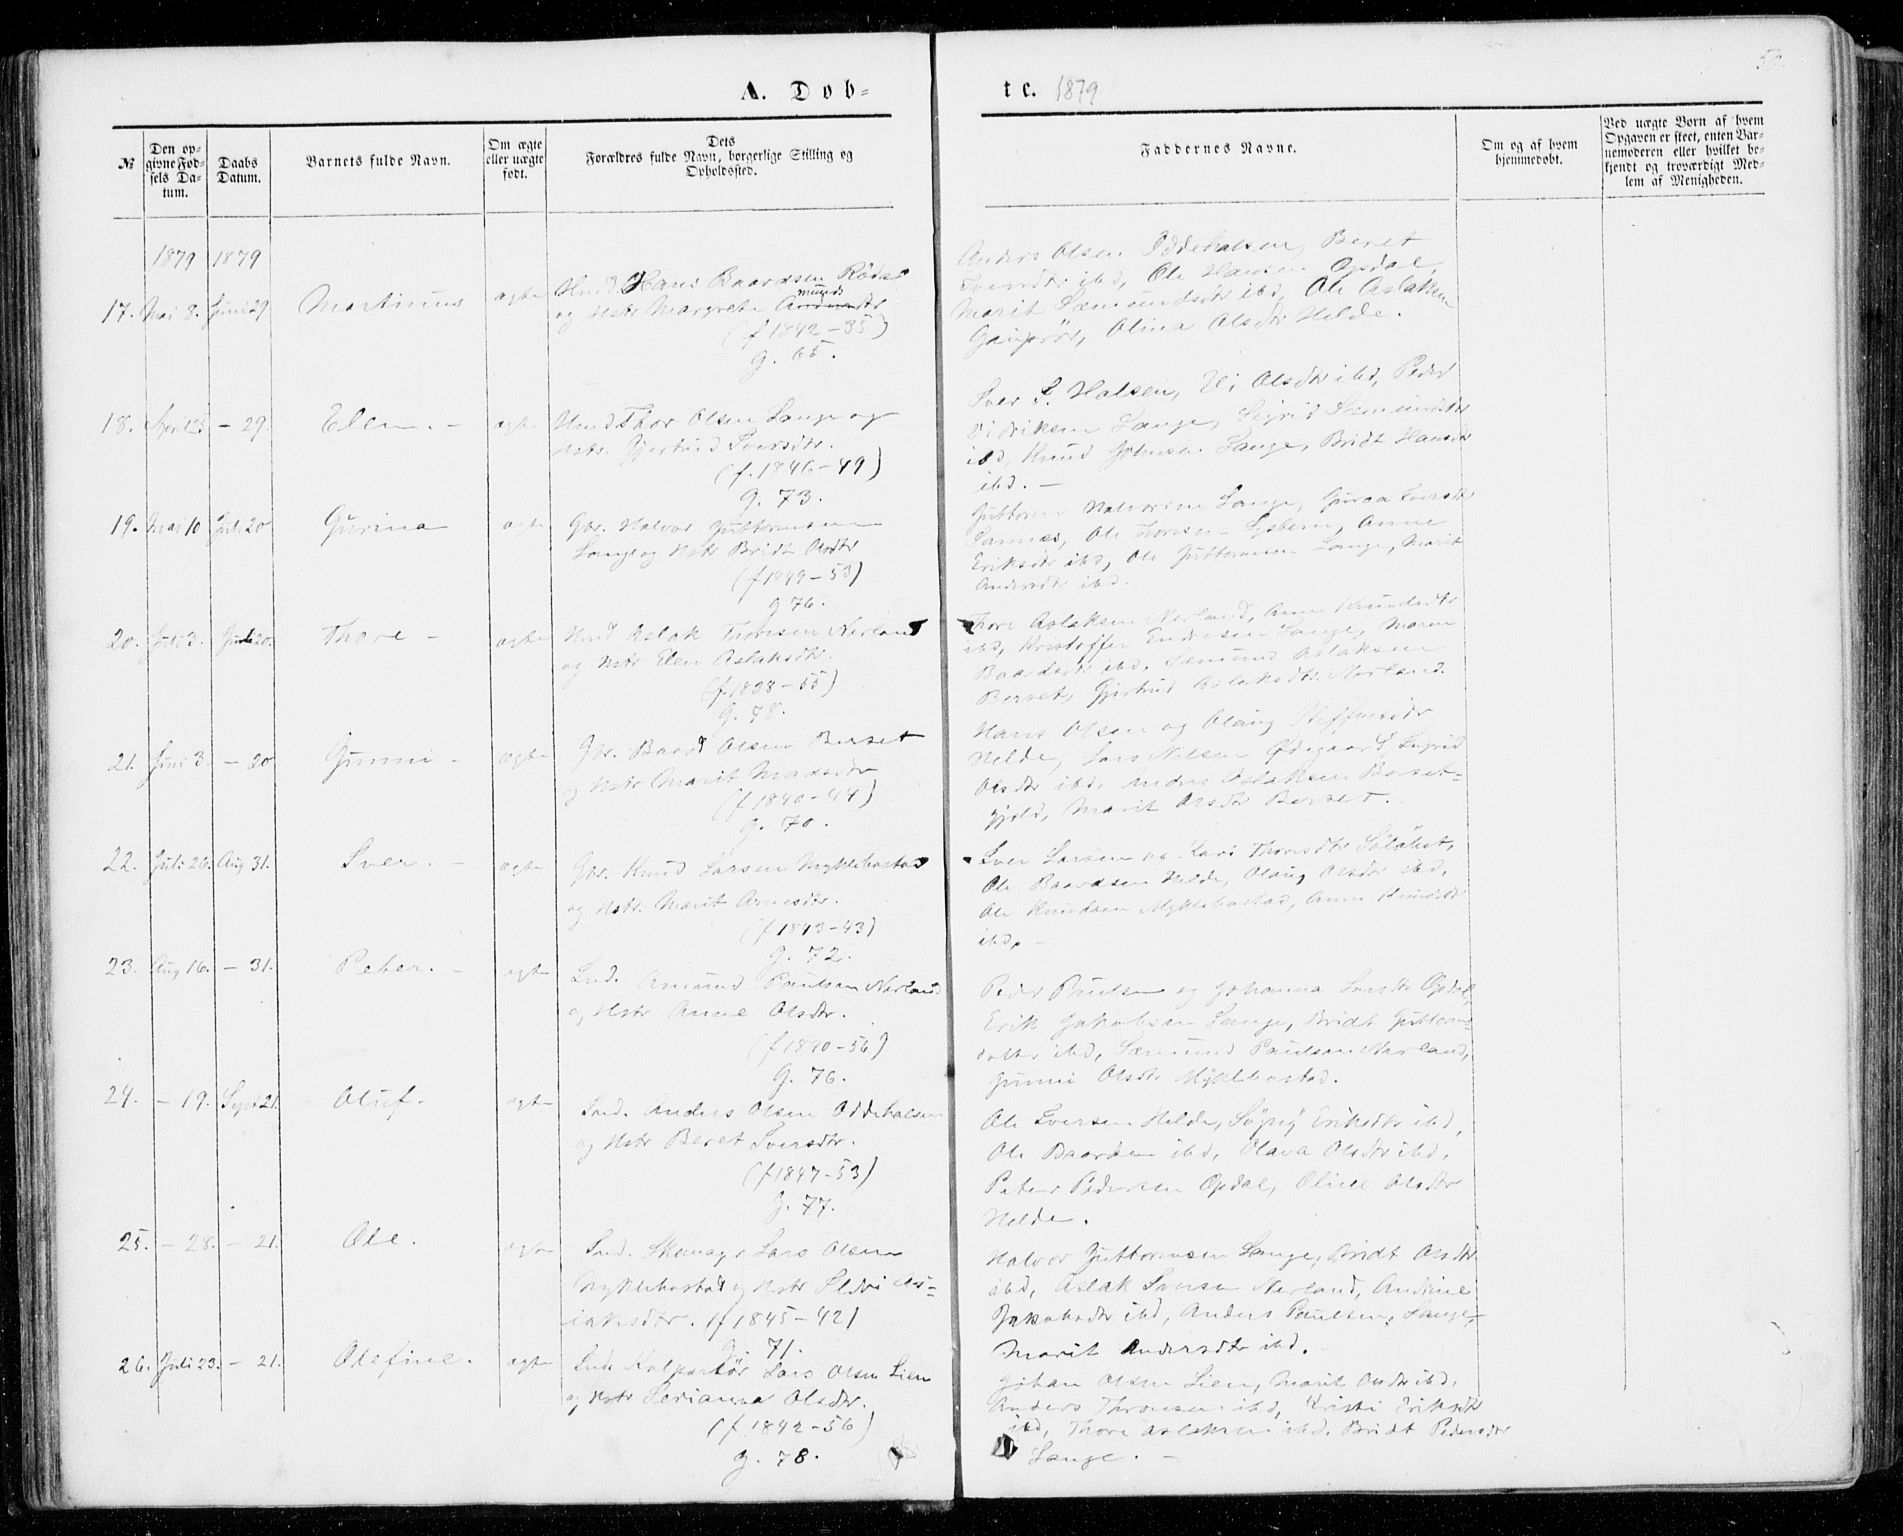 50.
A. Døb-
te. 1879
№
Den op-
givne Fød-
sels Da-
tum.
Daabs
Datum.
Barnets fulde Navn.
Om ægte
eller uægte
født.
Dets
Forældres fulde Navn, borgerlige Stilling og
Opholdssted.
Faddernes Navne.
Om og af hvem
hjemmedøbt.
Ved uægte Børn af hvem
Opgaven er skeet, enten Bar-
nemoderen eller hvilket be-
kjendt og troværdigt Med-
lem af Menigheden.
1879 1879
17. Mai 8. Juni 29 Martinus ægte Hmd Hans Baardsen Rødal
og Hstr Margrete Amundsdtr
(f 1842-35)
g. 65.
Anders Olsen Oddehalsen, Beret
Iversdtr ibd, Ole Hansen Opdal,
Marit Sæmundsdtr ibd, Ole Aslaksen
Olina Olsdtr Helde.
18. April 23 - 29. Elen. - ægte Hmd Thor Olsen Lange og
Hstr. Gjertrud Iversdtr.
(f. 1846-49)
g. 73.
Iver I. Halsen, Olsdtr ibd, Peder
Didriksen Lange, Sigrid Sæmundsdtr
ibd, Knud Johnsen Lange, Bridt Hansdtr
ibd. -
19. Mai 10 Juli 20 Gurina ægte Gbr. Halvor Guttormsen
Lange og Hstr Bridt Olsdtr
(f 1849-53)
g 76.
Guttorm Halvorsen Lange, Guroa Iversdtr
Sannes, Ole Thoresen Anne
Eriksdtr ibd, Ole Guttormsen Lange, Marit
Andersdtr ibd.
20. Juli 3. Juli 20. Thore - ægte Hmd Aslak Thoresen Nerland
og Hstr Elen Aslaksdtr.
(f. 1838-55)
g. 78.
Thore Aslaksen Nerland, Anne Knudsdtr
ibd, Kristoffer Endresen Lange, Maren
Baardsdtr ibd. Sæmund Aslaksen
Berset, Gjertrud Aslaksdtr Nerland.
21. Juni 3. - 20 Gunni - ægte Gbr. Baard Olsen Berset
og Hstr Marit Madsdtr
(f 1840-44)
g. 70.
Hans Olsen og Olaug Steffensdtr
Helde, Lars Nilsen Ødegaard, Sigrid
Olsdtr ibd. Anders Aslaksen Berset-
gjeld, Marit Olsdtr Berset.
22. Juli 26. Aug 31. Iver. - ægte Gbr. Knud Larsen Myklebostad
og Hstr. Marit Arnesdtr.
(f 1843-43)
g. 72.
Iver Larsen og Kari Thoresdtr
Ole Baardsen Helde, Olaug Olsdtr ibd,
Ole Knudsen Myklebostad, Anne Knudsdtr
ibd. -
23. Aug 16. - 31. Peter. - ægte Ind. Amund Paulsen Nerland
og Hstr Anne Olsdtr.
(f 1840-56)
g. 76.
Peder Paulsen og Johanna Larsdtr Opdal,
Erik Jakobsen Lange, Bridt Guttorms-
datter ibd, Sæmund Paulsen Nerland,
Gunni Olsdtr Myklebostad.
24. - 19. Sept 21. Oluf. ægte Ind. Anders Olsen Oddehalsen
og Hstr Beret Iversdtr.
(f 1847-53)
g. 77.
Ole Iversen Helde, Eriksdtr ibd,
Ole Baardsen ibd, Olava Olsdtr ibd,
Peter Pedersen Opdal, Oline Olsdtr
Helde.
25. - 28. - 21. Ole. ægte Ind. Skomager Lars Olsen
Myklebostad og Hstr Eldri As-
laksdtr. (f 1845-42)
g. 71.
Halvor Guttormsen Lange, Bridt Olsdtr
ibd, Aslak Iversen Nerland, Andrine
Jakobsdtr ibd, Anders Paulsen Lange,
Marit Andersdtr ibd.
26. Juli 23. - 21. Olefine. ægte Ind. Kolportør Lars Olsen Lien
og Hstr Serianna Olsdtr.
(f 1842-56)
g. 78.
Johan Olsen Lien, Marit Olsdtr ibd.
Anders Thoresen ibd, Kristi Eriksdtr
ibd, Thore Aslaksen ibd. Bridt Pedersdtr
Lange. -